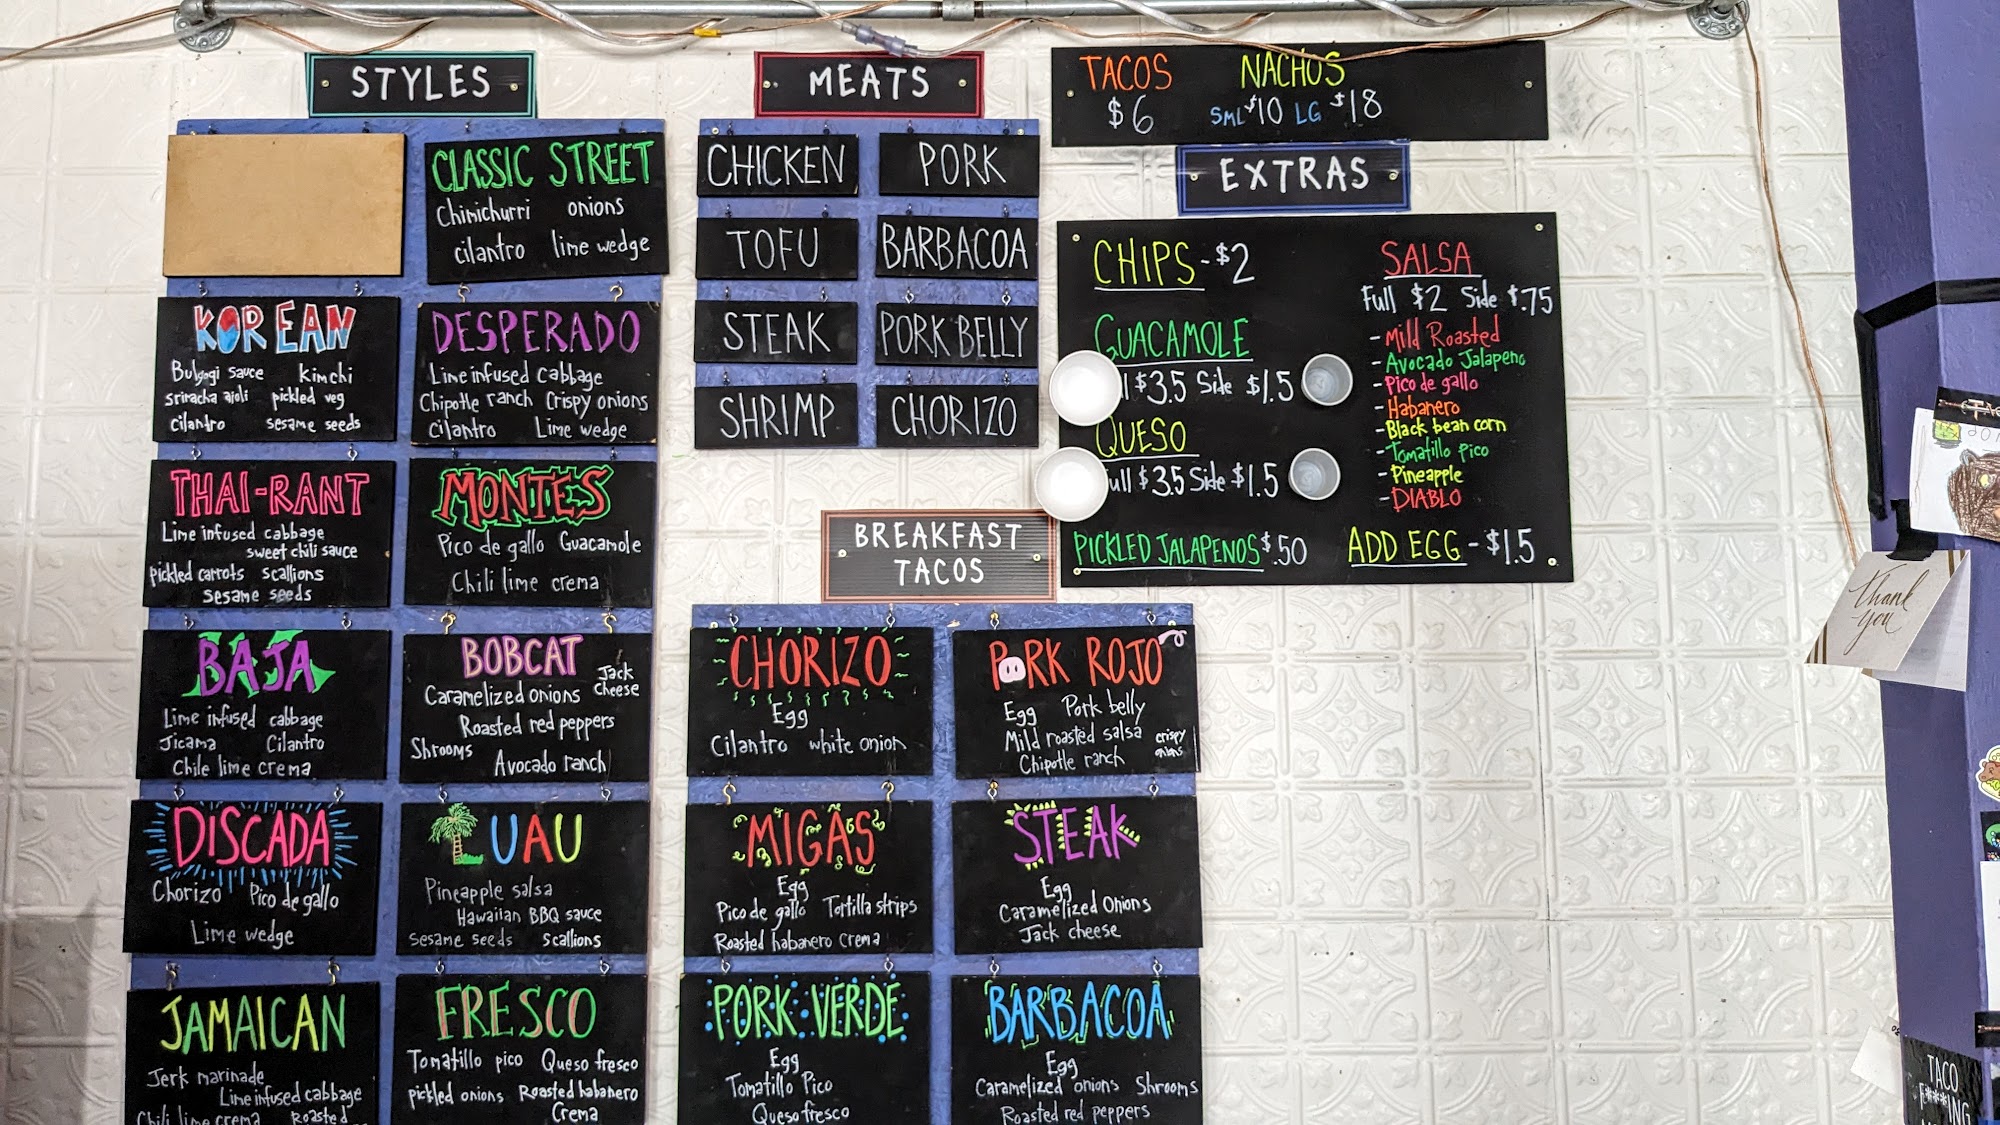 STYLES
CLASSIC STREET
Chimichurri onions
cilantro lime wedge
KOREAN
Bulgogi sauce kimchi
sriracha aioli pickled veg
cilantro sesame seeds
DESPERADO
Lime infused cabbage
Chipotle ranch Crispy onions
Cilantro Lime wedge
THAI-RANT
Lime infused cabbage
sweet chili sauce
pickled carrots scallions
sesame seeds
MONTES
Pico de gallo Guacamole
Chili lime crema
BAJA
Lime infused cabbage
Jicama Cilantro
Chile lime crema
BOBCAT
Jack
Caramelized onions cheese
Roasted red peppers
Shrooms
Avocado ranch
DISCADA
Chorizo Pico de gallo
Lime wedge
LUAU
Pineapple salsa
Hawaiian BBQ sauce
sesame seeds scallions
JAMAICAN
Jerk marinade
Lime infused cabbage
Chili lime crema Roasted
FRESCO
Tomatillo pico Queso fresco
pickled onions Roasted habanero
Crema
MEATS
CHICKEN
PORK
TOFU
BARBACOA
STEAK
PORK BELLY
SHRIMP
CHORIZO
BREAKFAST
TACOS
CHORIZO
Egg
Cilantro white onion
PORK ROJO
Egg Pork belly
Mild roasted salsa crispy
Chipotle ranch onions
MIGAS
Egg
Pico de gallo Tortilla strips
Roasted habanero Crema
STEAK
Egg
Caramelized Onions
Jack cheese
PORK VERDE
Egg
Tomatillo Pico
Queso fresco
BARBACOA
Egg
Caramelized onions Shrooms
Roasted red peppers
TACOS NACHOS
$6 SML $10 LG $18
EXTRAS
CHIPS - $2
GUACAMOLE
$3.5 Side $1.5
QUESO
Full $3.5 Side $1.5
PICKLED JALAPENOS $.50
SALSA
Full $2 Side $.75
- Mild Roasted
- Avocado Jalapeno
- Pico de gallo
- Habanero
- Black bean corn
- Tomatillo pico
- Pineapple
- DIABLO
ADD EGG - $1.5
Thank
you
TACO
F****ING